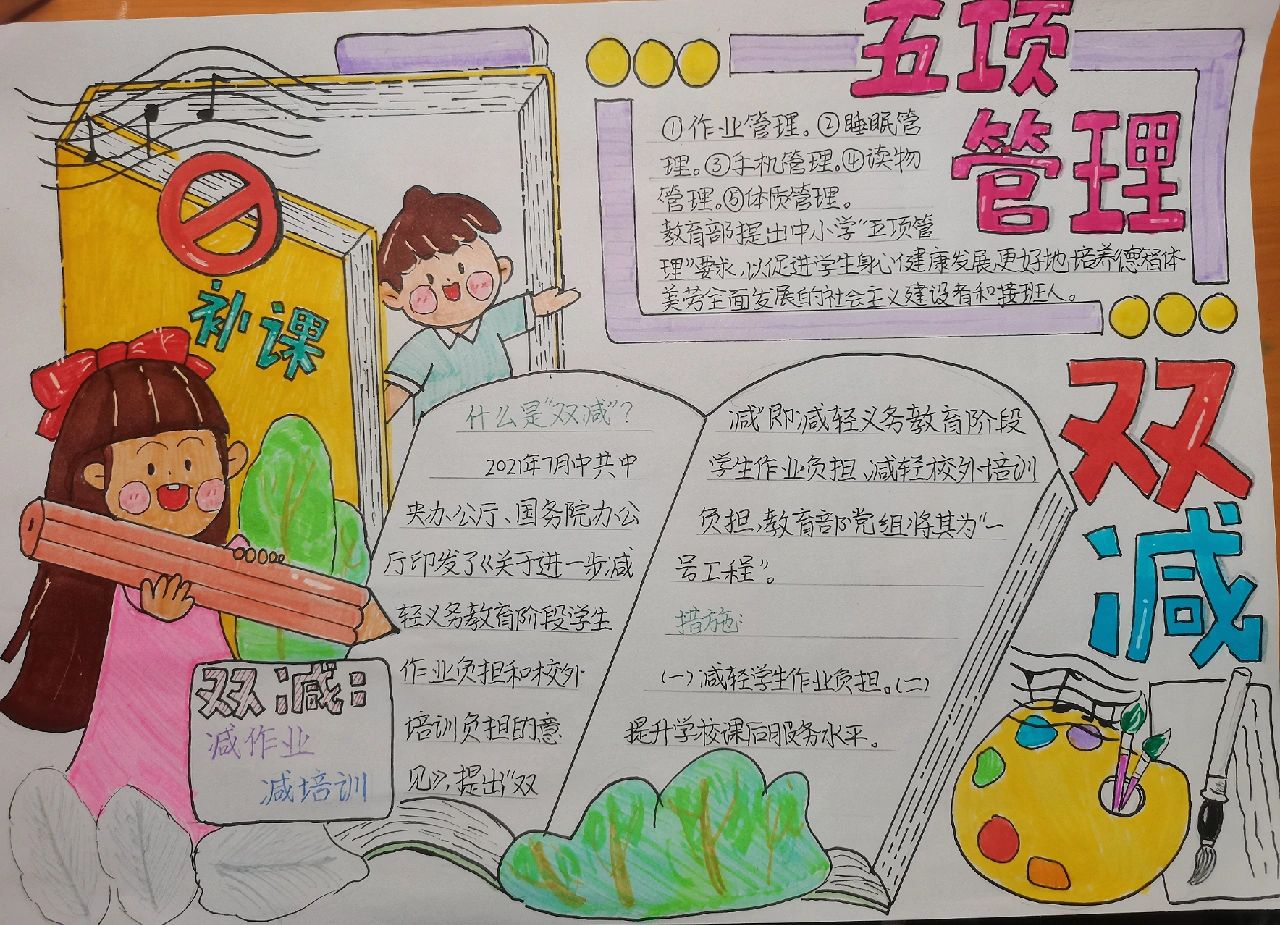 五项
管理
①作业管理。②睡眠管
理。③手机管理。④读物
管理。⑤体质管理。
教育部提出中小学“五项管
理”要求，以促进学生身心健康发展更好地培养德智体
美劳全面发展的社会主义建设者和接班人。
补课
双
减
什么是“双减”？
2021年7月中共中
央办公厅、国务院办公
厅印发了《关于进一步减
轻义务教育阶段学生
作业负担和校外
培训负担的意
见》，提出“双
减”即减轻义务教育阶段
学生作业负担、减轻校外培训
负担，教育部党组将其为“一
号工程”。
措施：
(一)减轻学生作业负担。(二)
提升学校课后服务水平。
双减：
减作业
减培训